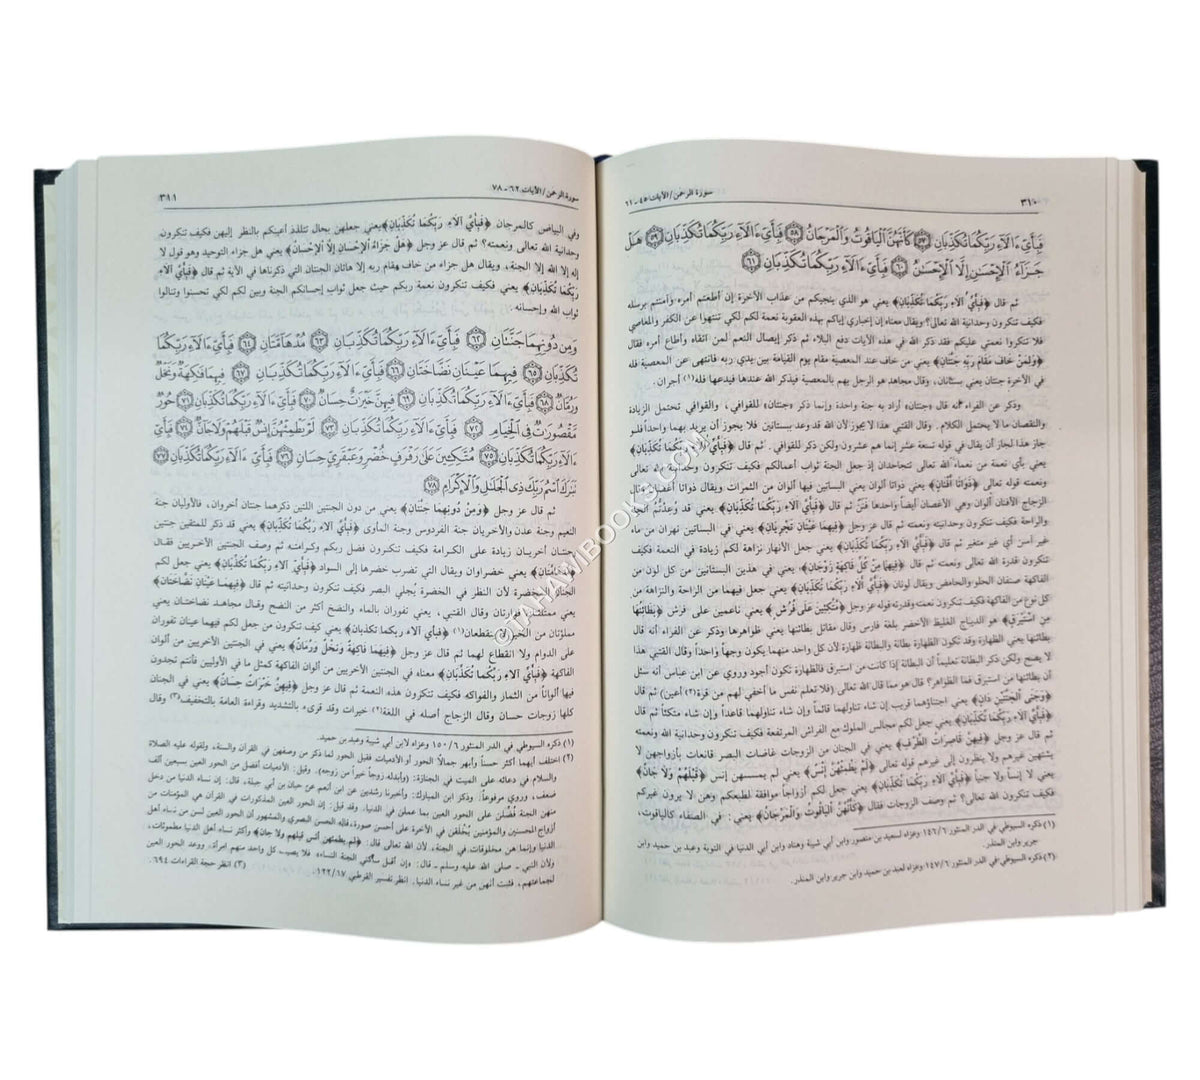 سورة الرحمن / الآيات: ٤٥ - ٦١
٣١٠
فَبِأَيِّ ءَالَآءِ رَبِّكُمَا تُكَذِّبَانِ ﴿٥٧﴾ كَأَنَّهُنَّ الْيَاقُوتُ وَالْمَرْجَانُ ﴿٥٨﴾ فَبِأَيِّ ءَالَآءِ رَبِّكُمَا تُكَذِّبَانِ ﴿٥٩﴾ هَلْ
جَزَآءُ الْإِحْسَٰنِ إِلَّا الْإِحْسَٰنُ ﴿٦٠﴾ فَبِأَيِّ ءَالَآءِ رَبِّكُمَا تُكَذِّبَانِ ﴿٦١﴾
ثم قال ﴿فَبِأَيِّ آلَاءِ رَبِّكُمَا تُكَذِّبَانِ﴾ يعني هو الذي ينجيكم من عذاب الآخرة إن أطعتم أمره وآمنتم برسله
فكيف تنكرون وحدانية الله تعالى؟ ويقال معناه إن إخباري إياكم بهذه العقوبة نعمة لكم لكي تنتهوا عن الكفر والمعاصي
فلا تنكروا نعمتي عليكم فقد ذكر الله في هذه الآيات دفع البلاء ثم ذكر إيصال النعم لمن اتقاه وأطاع أمره فقال
﴿وَلِمَنْ خَافَ مَقَامَ رَبِّهِ جَنَّتَانِ﴾ يعني من خاف عند المعصية مقام يوم القيامة بين يدي ربه فانتهى عن المعصية فله
في الآخرة جنتان يعني بستانان، وقال مجاهد هو الرجل يهم بالمعصية فيذكر الله عندها فيدعها فله (١) أجران.
وذكر عن الفراء أنه قال «جنتان» أراد به جنة واحدة وإنما ذكر «جنتان» للقوافي، والقوافي تحتمل الزيادة
والنقصان ما لا يحتمل الكلام. وقال القتبي هذا لا يجوز لأن الله قد وعد ببستانين فلا يجوز أن يريد بهما واحداً فلو
جاز هذا لجاز أن يقال في قوله تسعة عشر إنما هم عشرون ولكن ذكر للقوافي. ثم قال ﴿فَبِأَيِّ آلَاءِ رَبِّكُمَا تُكَذِّبَانِ﴾
يعني بأي نعمة من نعماء الله تعالى تتجاحدان إذ جعل الجنة ثواب أعمالكم فكيف تنكرون وحدانية الله تعالى
ونعمته قوله تعالى ﴿ذَوَاتَا أَفْنَانٍ﴾ يعني ذواتا ألوان يعني البساتين فيها ألوان من الثمرات ويقال ذواتا أغصان وقال
الزجاج الأفنان ألوان وهي الأغصان أيضاً واحدها فنن ثم قال ﴿فَبِأَيِّ آلَاءِ رَبِّكُمَا تُكَذِّبَانِ﴾ يعني قد وعدتم
والراحة فكيف تنكرون وحدانيته ونعمته ثم قال عز وجل ﴿فِيهِمَا عَيْنَانِ تَجْرِيَانِ﴾ يعني في البساتين نهران من ماء
غير آسن أي غير متغير ثم قال ﴿فَبِأَيِّ آلَاءِ رَبِّكُمَا تُكَذِّبَانِ﴾ يعني جعل الأنهار نزاهة لكم زيادة في النعمة فكيف
تنكرون قدرة الله تعالى ونعمته ثم قال ﴿فِيهِمَا مِنْ كُلِّ فَاكِهَةٍ زَوْجَانِ﴾ يعني في هذين البستانين من كل لون من
الفاكهة صنفان الحلو والحامض ويقال لونان ﴿فَبِأَيِّ آلَاءِ رَبِّكُمَا تُكَذِّبَانِ﴾ يعني جعل لهم فيهما من الراحة والنزاهة من
كل نوع من الفاكهة فكيف تنكرون نعمته وقدرته قوله عز وجل ﴿مُتَّكِئِينَ عَلَى فُرُشٍ﴾ يعني ناعمين على فرش ﴿بَطَائِنُهَا
مِنْ إِسْتَبْرَقٍ﴾ هو الديباج الغليظ الأخضر بلغة فارس وقال مقاتل بطائنها يعني ظواهرها وذكر عن الفراء أنه قال
بطائنها يعني الظهارة وقد تكون الظهارة بطانة والبطانة ظهارة لأن كل واحد منهما يكون وجهاً واحداً وقال القتبي هذا
لا يصح ولكن ذكر البطانة تعليماً أن البطانة إذا كانت من استبرق فالظهارة تكون أجود وروي عن ابن عباس أنه سئل
أن بطائنها من استبرق فما الظواهر؟ قال هو مما قال الله تعالى ﴿فلا تعلم نفس ما أخفي لهم من قرة (٢) أعين﴾ ثم قال
﴿وَجَنَى الْجَنَّتَيْنِ دَانٍ﴾ يعني اجتناؤهما قريب إن شاء تناولهما قائماً وإن شاء تناولهما قاعداً وإن شاء متكئاً ثم قال
﴿فَبِأَيِّ آلَاءِ رَبِّكُمَا تُكَذِّبَانِ﴾ يعني جعل لكم مجالس الملوك مع الفراش المرتفعة فكيف تنكرون وحدانية الله ونعمته
ثم قال عز وجل ﴿فِيهِنَّ قَاصِرَاتُ الطَّرْفِ﴾ يعني في الجنان من الزوجات غاضات البصر قانعات بأزواجهن لا
يشتهين غيرهم ولا ينظرن إلى غيرهم قوله تعالى ﴿لَمْ يَطْمِثْهُنَّ إِنْسٌ﴾ يعني لم يمسسهن إنس ﴿قَبْلَهُمْ وَلَا جَانٌّ﴾
يعني لا إنساً ولا جنياً ﴿فَبِأَيِّ آلَاءِ رَبِّكُمَا تُكَذِّبَانِ﴾ يعني جعل لكم أزواجاً موافقة لطبعكم وهن لا يرون غيركم
فكيف تنكرون الله تعالى؟ ثم وصف الزوجات فقال ﴿كَأَنَّهُنَّ الْيَاقُوتُ وَالْمَرْجَانُ﴾ يعني: في الصفاء كالياقوت،
(١) ذكره السيوطي في الدر المنثور ١٤٦/٦ وعزاه لسعيد بن منصور وابن أبي شيبة وهناد وابن أبي الدنيا في التوبة وعبد بن حميد وابن
جرير وابن المنذر.
(٢) ذكره السيوطي في الدر المنثور ١٤٧/٦ وعزاه لعبد بن حميد وابن جرير وابن المنذر.
سورة الرحمن / الآيات: ٦٢ - ٧٨
٣١١
وفي البياض كالمرجان ﴿فَبِأَيِّ آلَاءِ رَبِّكُمَا تُكَذِّبَانِ﴾ يعني جعلهن بحال تتلذذ أعينكم بالنظر إليهن فكيف تنكرون
وحدانية الله تعالى ونعمته؟ ثم قال عز وجل ﴿هَلْ جَزَاءُ الْإِحْسَانِ إِلَّا الْإِحْسَانُ﴾ يعني هل جزاء التوحيد وهو قول لا
إله إلا الله إلا الجنة، ويقال هل جزاء من خاف مقام ربه إلا هاتان الجنتان التي ذكرناها في الآية ثم قال ﴿فَبِأَيِّ آلَاءِ
رَبِّكُمَا تُكَذِّبَانِ﴾ يعني فكيف تنكرون نعمة ربكم حيث جعل ثواب إحسانكم الجنة وبين لكم لكي تحسنوا وتنالوا
ثواب الله وإحسانه.
وَمِن دُونِهِمَا جَنَّتَانِ ﴿٦٢﴾ فَبِأَيِّ ءَالَآءِ رَبِّكُمَا تُكَذِّبَانِ ﴿٦٣﴾ مُدْهَآمَّتَانِ ﴿٦٤﴾ فَبِأَيِّ ءَالَآءِ رَبِّكُمَا
تُكَذِّبَانِ ﴿٦٥﴾ فِيهِمَا عَيْنَانِ نَضَّاخَتَانِ ﴿٦٦﴾ فَبِأَيِّ ءَالَآءِ رَبِّكُمَا تُكَذِّبَانِ ﴿٦٧﴾ فِيهِمَا فَاكِهَةٌ وَنَخْلٌ
وَرُمَّانٌ ﴿٦٨﴾ فَبِأَيِّ ءَالَآءِ رَبِّكُمَا تُكَذِّبَانِ ﴿٦٩﴾ فِيهِنَّ خَيْرَٰتٌ حِسَانٌ ﴿٧٠﴾ فَبِأَيِّ ءَالَآءِ رَبِّكُمَا تُكَذِّبَانِ ﴿٧١﴾ حُورٌ
مَّقْصُورَٰتٌ فِي الْخِيَامِ ﴿٧٢﴾ فَبِأَيِّ ءَالَآءِ رَبِّكُمَا تُكَذِّبَانِ ﴿٧٣﴾ لَمْ يَطْمِثْهُنَّ إِنسٌ قَبْلَهُمْ وَلَا جَآنٌّ ﴿٧٤﴾ فَبِأَيِّ
ءَالَآءِ رَبِّكُمَا تُكَذِّبَانِ ﴿٧٥﴾ مُتَّكِـِٔينَ عَلَىٰ رَفْرَفٍ خُضْرٍ وَعَبْقَرِيٍّ حِسَانٍ ﴿٧٦﴾ فَبِأَيِّ ءَالَآءِ رَبِّكُمَا تُكَذِّبَانِ ﴿٧٧﴾
تَبَٰرَكَ اسْمُ رَبِّكَ ذِي الْجَلَٰلِ وَالْإِكْرَامِ ﴿٧٨﴾
ثم قال عز وجل ﴿وَمِنْ دُونِهِمَا جَنَّتَانِ﴾ يعني من دون الجنتين اللتين ذكرهما جنتان أخروان، فالأوليان جنة
النعيم وجنة عدن والأخريان جنة الفردوس وجنة المأوى ﴿فَبِأَيِّ آلَاءِ رَبِّكُمَا تُكَذِّبَانِ﴾ يعني قد ذكر للمتقين جنتين
وجنتان أخريان زيادة على الكرامة فكيف تنكرون فضل ربكم وكرامته ثم وصف الجنتين الأخريين فقال
﴿مُدْهَامَّتَانِ﴾ يعني خضراوان ويقال التي تضرب خضرها إلى السواد ﴿فَبِأَيِّ آلَاءِ رَبِّكُمَا تُكَذِّبَانِ﴾ يعني جعل لكم
الجنان الخضرة لأن النظر في الخضرة يُجلي البصر فكيف تنكرون وحدانيته ثم قال ﴿فِيهِمَا عَيْنَانِ نَضَّاخَتَانِ﴾
يعني ممتلئتان فوارتان وقال القتبي، يعني تفوران بالماء والنضخ أكثر من النضح وقال مجاهد نضاختان يعني
مملؤتان من الخير لا ينقطعان (١) ﴿فبأي آلاء ربكما تكذبان﴾ يعني كيف تنكرون من جعل لكم فيهما عينان تفوران
على الدوام ولا انقطاع لهما ثم قال عز وجل ﴿فِيهِمَا فَاكِهَةٌ وَنَخْلٌ وَرُمَّانٌ﴾ يعني في الجنتين الأخريين من ألوان
الفاكهة ﴿فَبِأَيِّ آلَاءِ رَبِّكُمَا تُكَذِّبَانِ﴾ معناه في الجنتين الأخريين من ألوان الفاكهة كمثل ما في الأوليين فأنتم تجدون
فيها ألواناً من الثمار والفواكه فكيف تنكرون هذه النعمة ثم قال عز وجل ﴿فِيهِنَّ خَيْرَاتٌ حِسَانٌ﴾ يعني في الجنان
كلها زوجات حسان وقال الزجاج أصله في اللغة (٢) خيرات وقد قرىء بالتشديد وقراءة العامة بالتخفيف (٣) وقال
(١) ذكره السيوطي في الدر المنثور ١٥٠/٦ وعزاه لابن أبي شيبة وعبد بن حميد.
(٢) اختلف أيهما أكثر حسناً وأبهر جمالاً الحور أو الآدميات فقيل الحور لما ذكر من وصفهن في القرآن والسنة، ولقوله عليه الصلاة
والسلام في دعائه على الميت في الجنازة: (وأبدله زوجاً خيراً من زوجه). وقيل: الآدميات أفضل من الحور العين بسبعين ألف
ضعف، وروي مرفوعاً. وذكر ابن المبارك: وأخبرنا رشدين عن ابن أنعم عن حبان بن أبي جبلة، قال: إن نساء الدنيا من دخل
منهن الجنة فُضّلن على الحور العين بما عملن في الدنيا. وقد قيل: إن الحور العين المذكورات في القرآن هن المؤمنات من
أزواج المحسنين والمؤمنين يُخْلقن في الآخرة على أحسن صورة، قاله الحسن البصري والمشهور أن الحور العين لسن من نساء أهل
الدنيا وإنما هن مخلوقات في الجنة، لأن الله تعالى قال: ﴿لم يطمثهن أنس قبلهم ولا جان﴾ وأكثر نساء أهل الدنيا مطموثات،
ولأن النبي - صلى الله عليه وسلم - قال: «إن أقل ساكني الجنة النساء» فلا يصيب كل واحد منهم امرأة، ووعد الحور العين
لجماعتهم، فثبت أنهن من غير نساء الدنيا. انظر تفسير القرطبي ١٢٢/١٧. (٣) انظر حجة القراءات ٦٩٤.
OTAHAWIBOOKS.COM